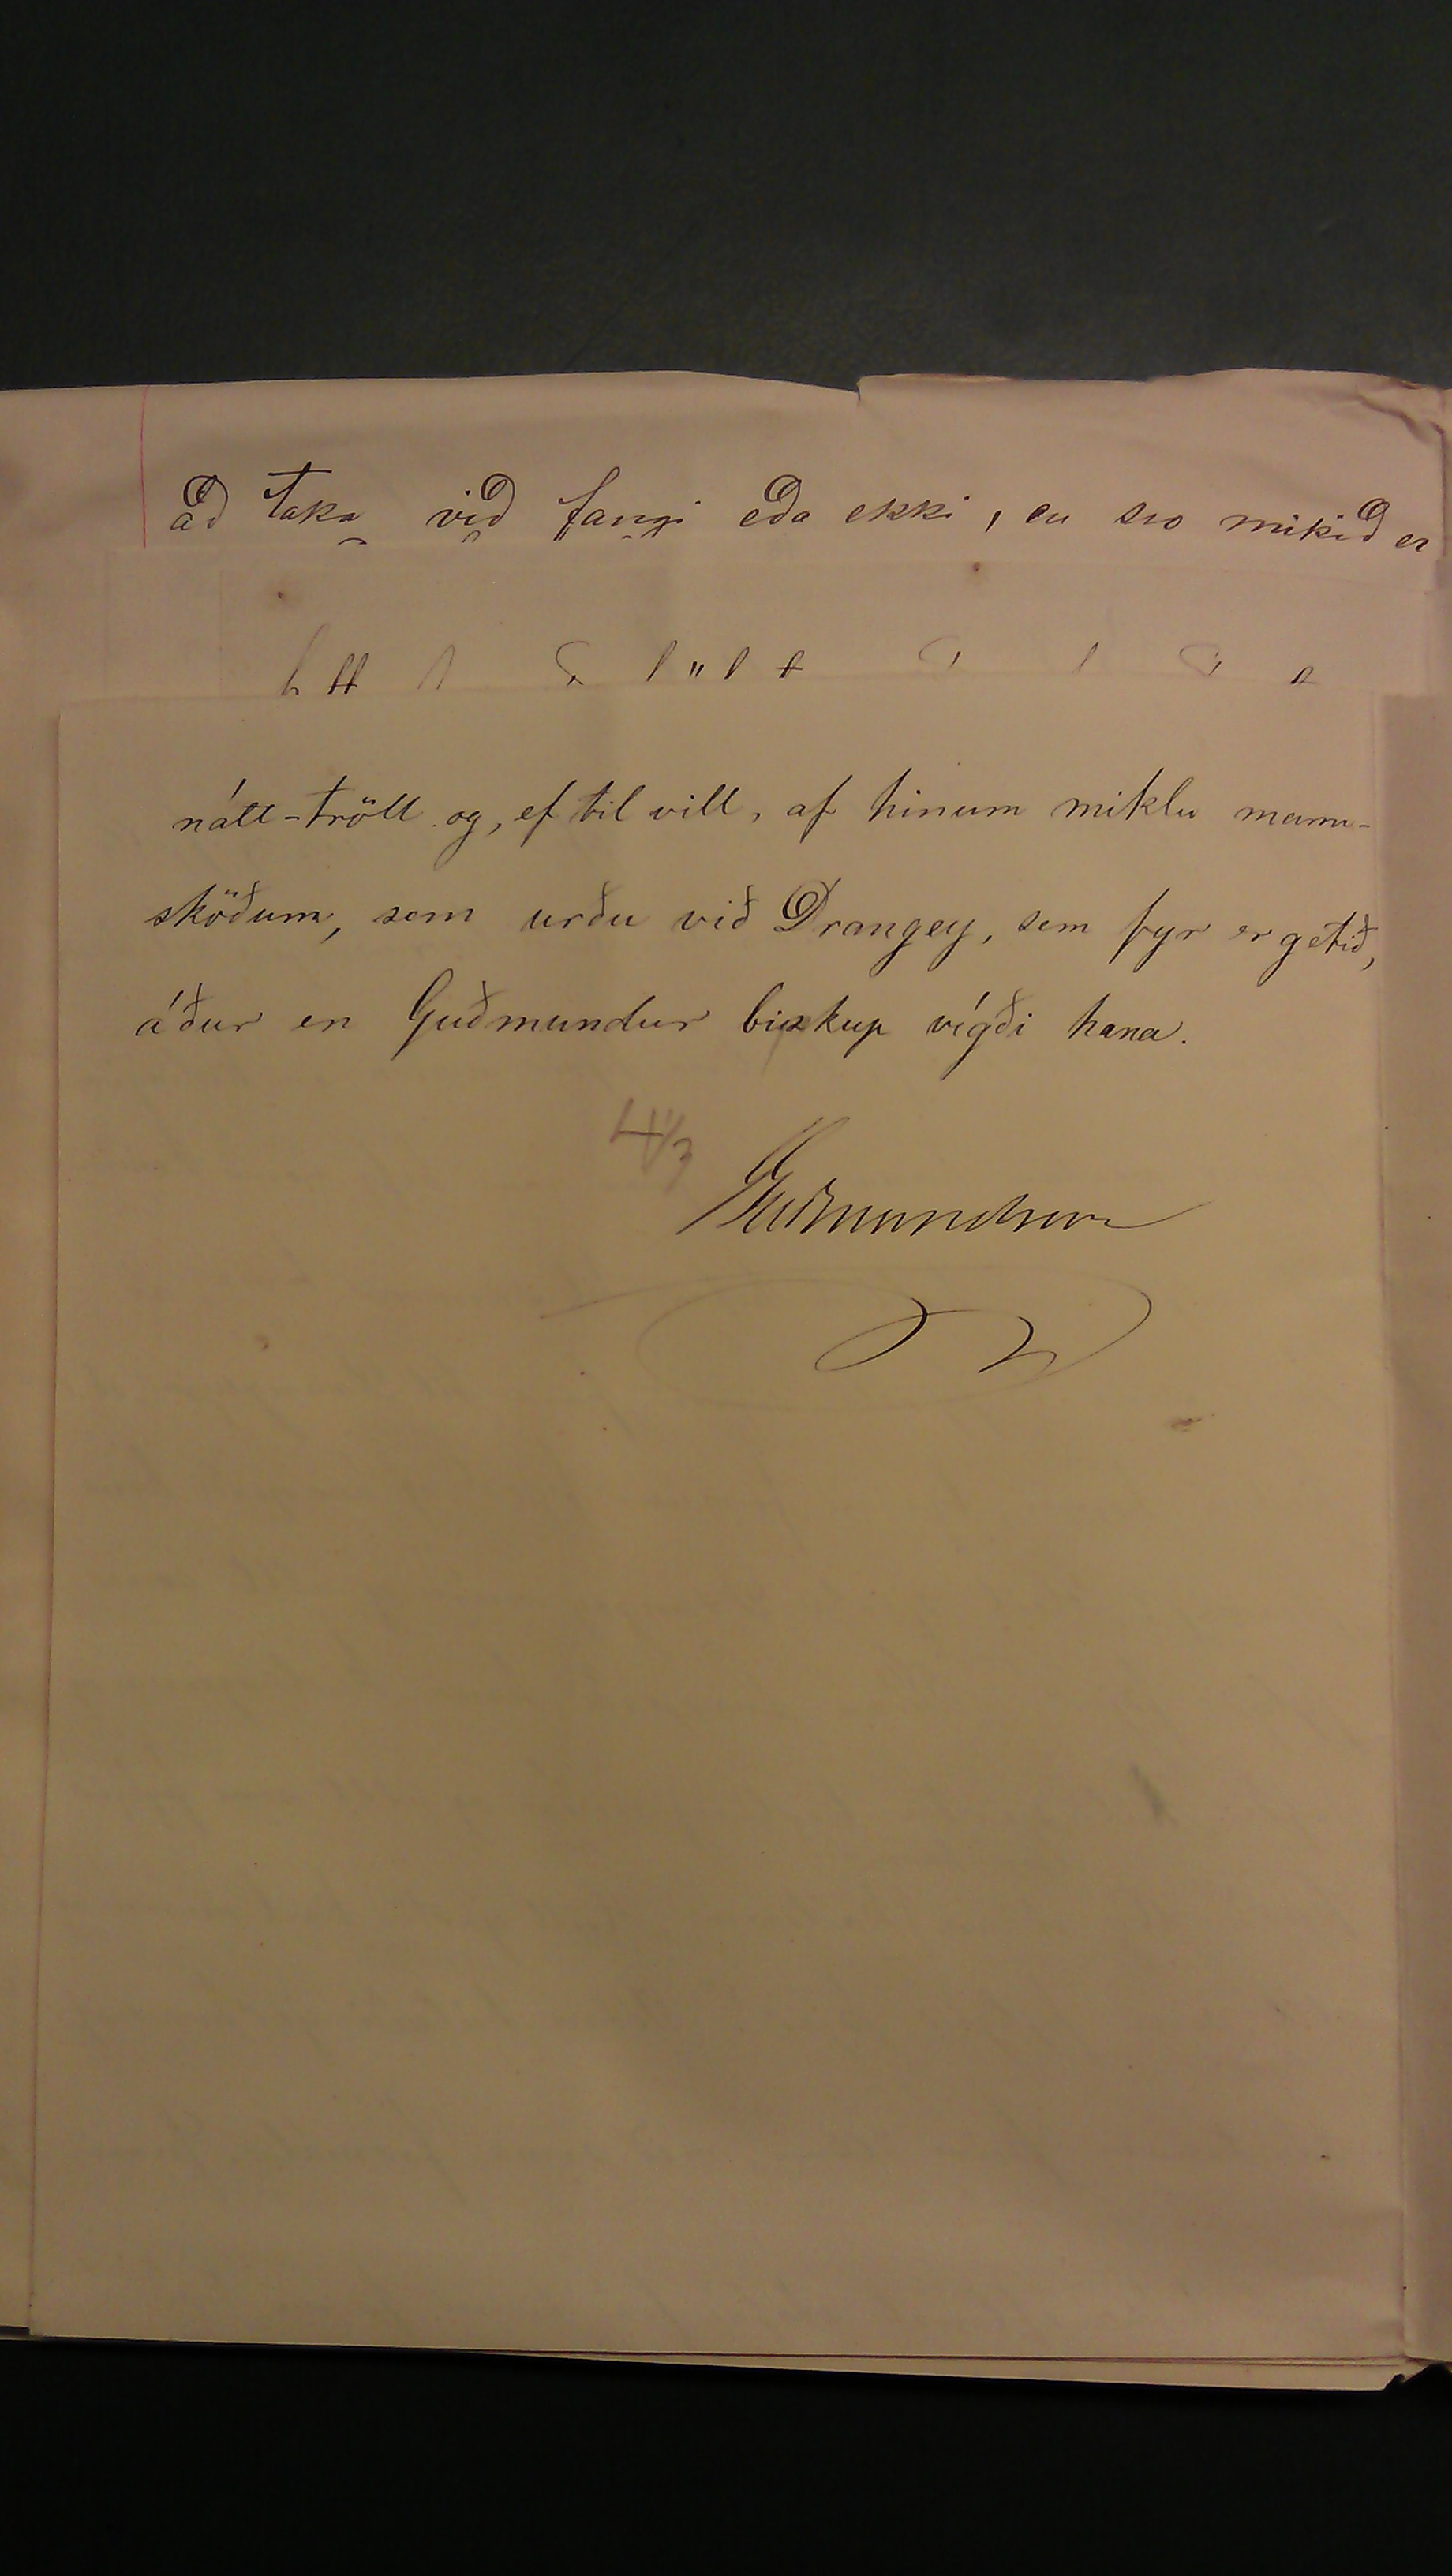 að taka við fangi eða ekki, en svo mikið er
nátt-tröll og, ef til vill, af hinum miklu mann-
sköðum, sem urðu við Drangey, sem fyr er getið,
áður en Guðmundur biskup vígði hana.
Guðmundsson